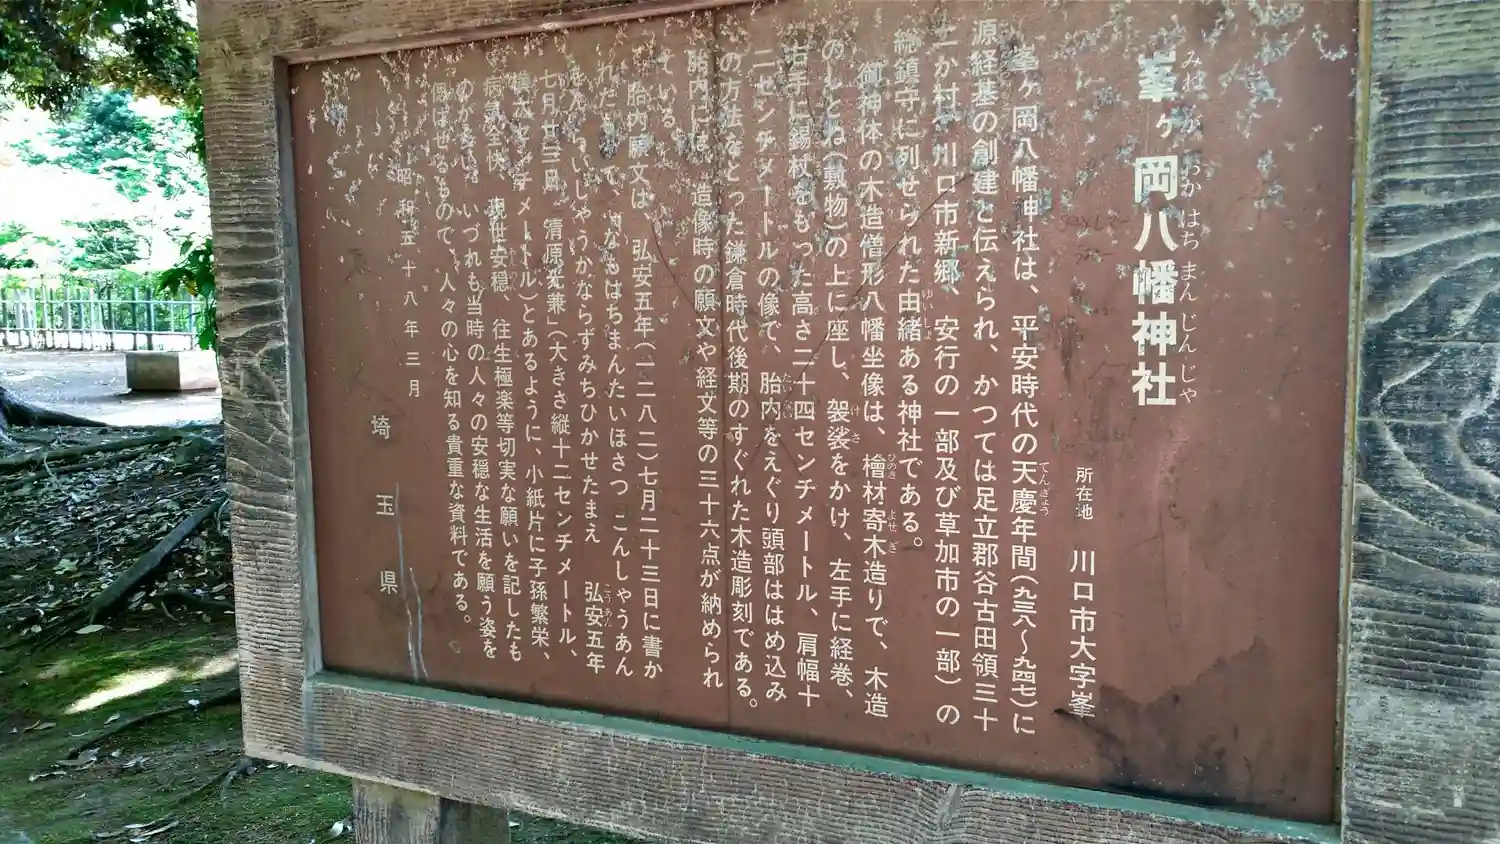 峯ヶ岡八幡神社
みねがおかはちまんじんじゃ
所在地 川口市大字峯
峯ヶ岡八幡神社は、平安時代の天慶年間(九三八〜九四七)に
源経基の創建と伝えられ、かつては足立郡谷古田領三十
二か村(川口市新郷、安行の一部及び草加市の一部)の
総鎮守に列せられた由緒ある神社である。
御神体の木造僧形八幡坐像は、檜材寄木造りで、木造
のしとね(敷物)の上に座し、袈裟をかけ、左手に経巻、
右手に錫杖をもった高さ二十四センチメートル、肩幅十
二センチメートルの像で、胎内をえぐり頭部ははめ込み
の方法をとった鎌倉時代後期のすぐれた木造彫刻である。
胎内には、造像時の願文や経文等の三十六点が納められ
ている。
胎内願文は、弘安五年(一二八二)七月二十三日に書か
れたもので、「なもはちまんたいほさつ こんしゃうあん
をん らいしゃうかならずみちひかせたまえ 弘安五年
七月廿三日 清原光兼」(大きさ縦十二センチメートル、
横六センチメートル)とあるように、小紙片に子孫繁栄、
病気全快、現世安穏、往生極楽等切実な願いを記したも
のが多い。いづれも当時の人々の安穏な生活を願う姿を
偲ばせるもので、人々の心を知る貴重な資料である。
昭和五十八年三月
埼玉県